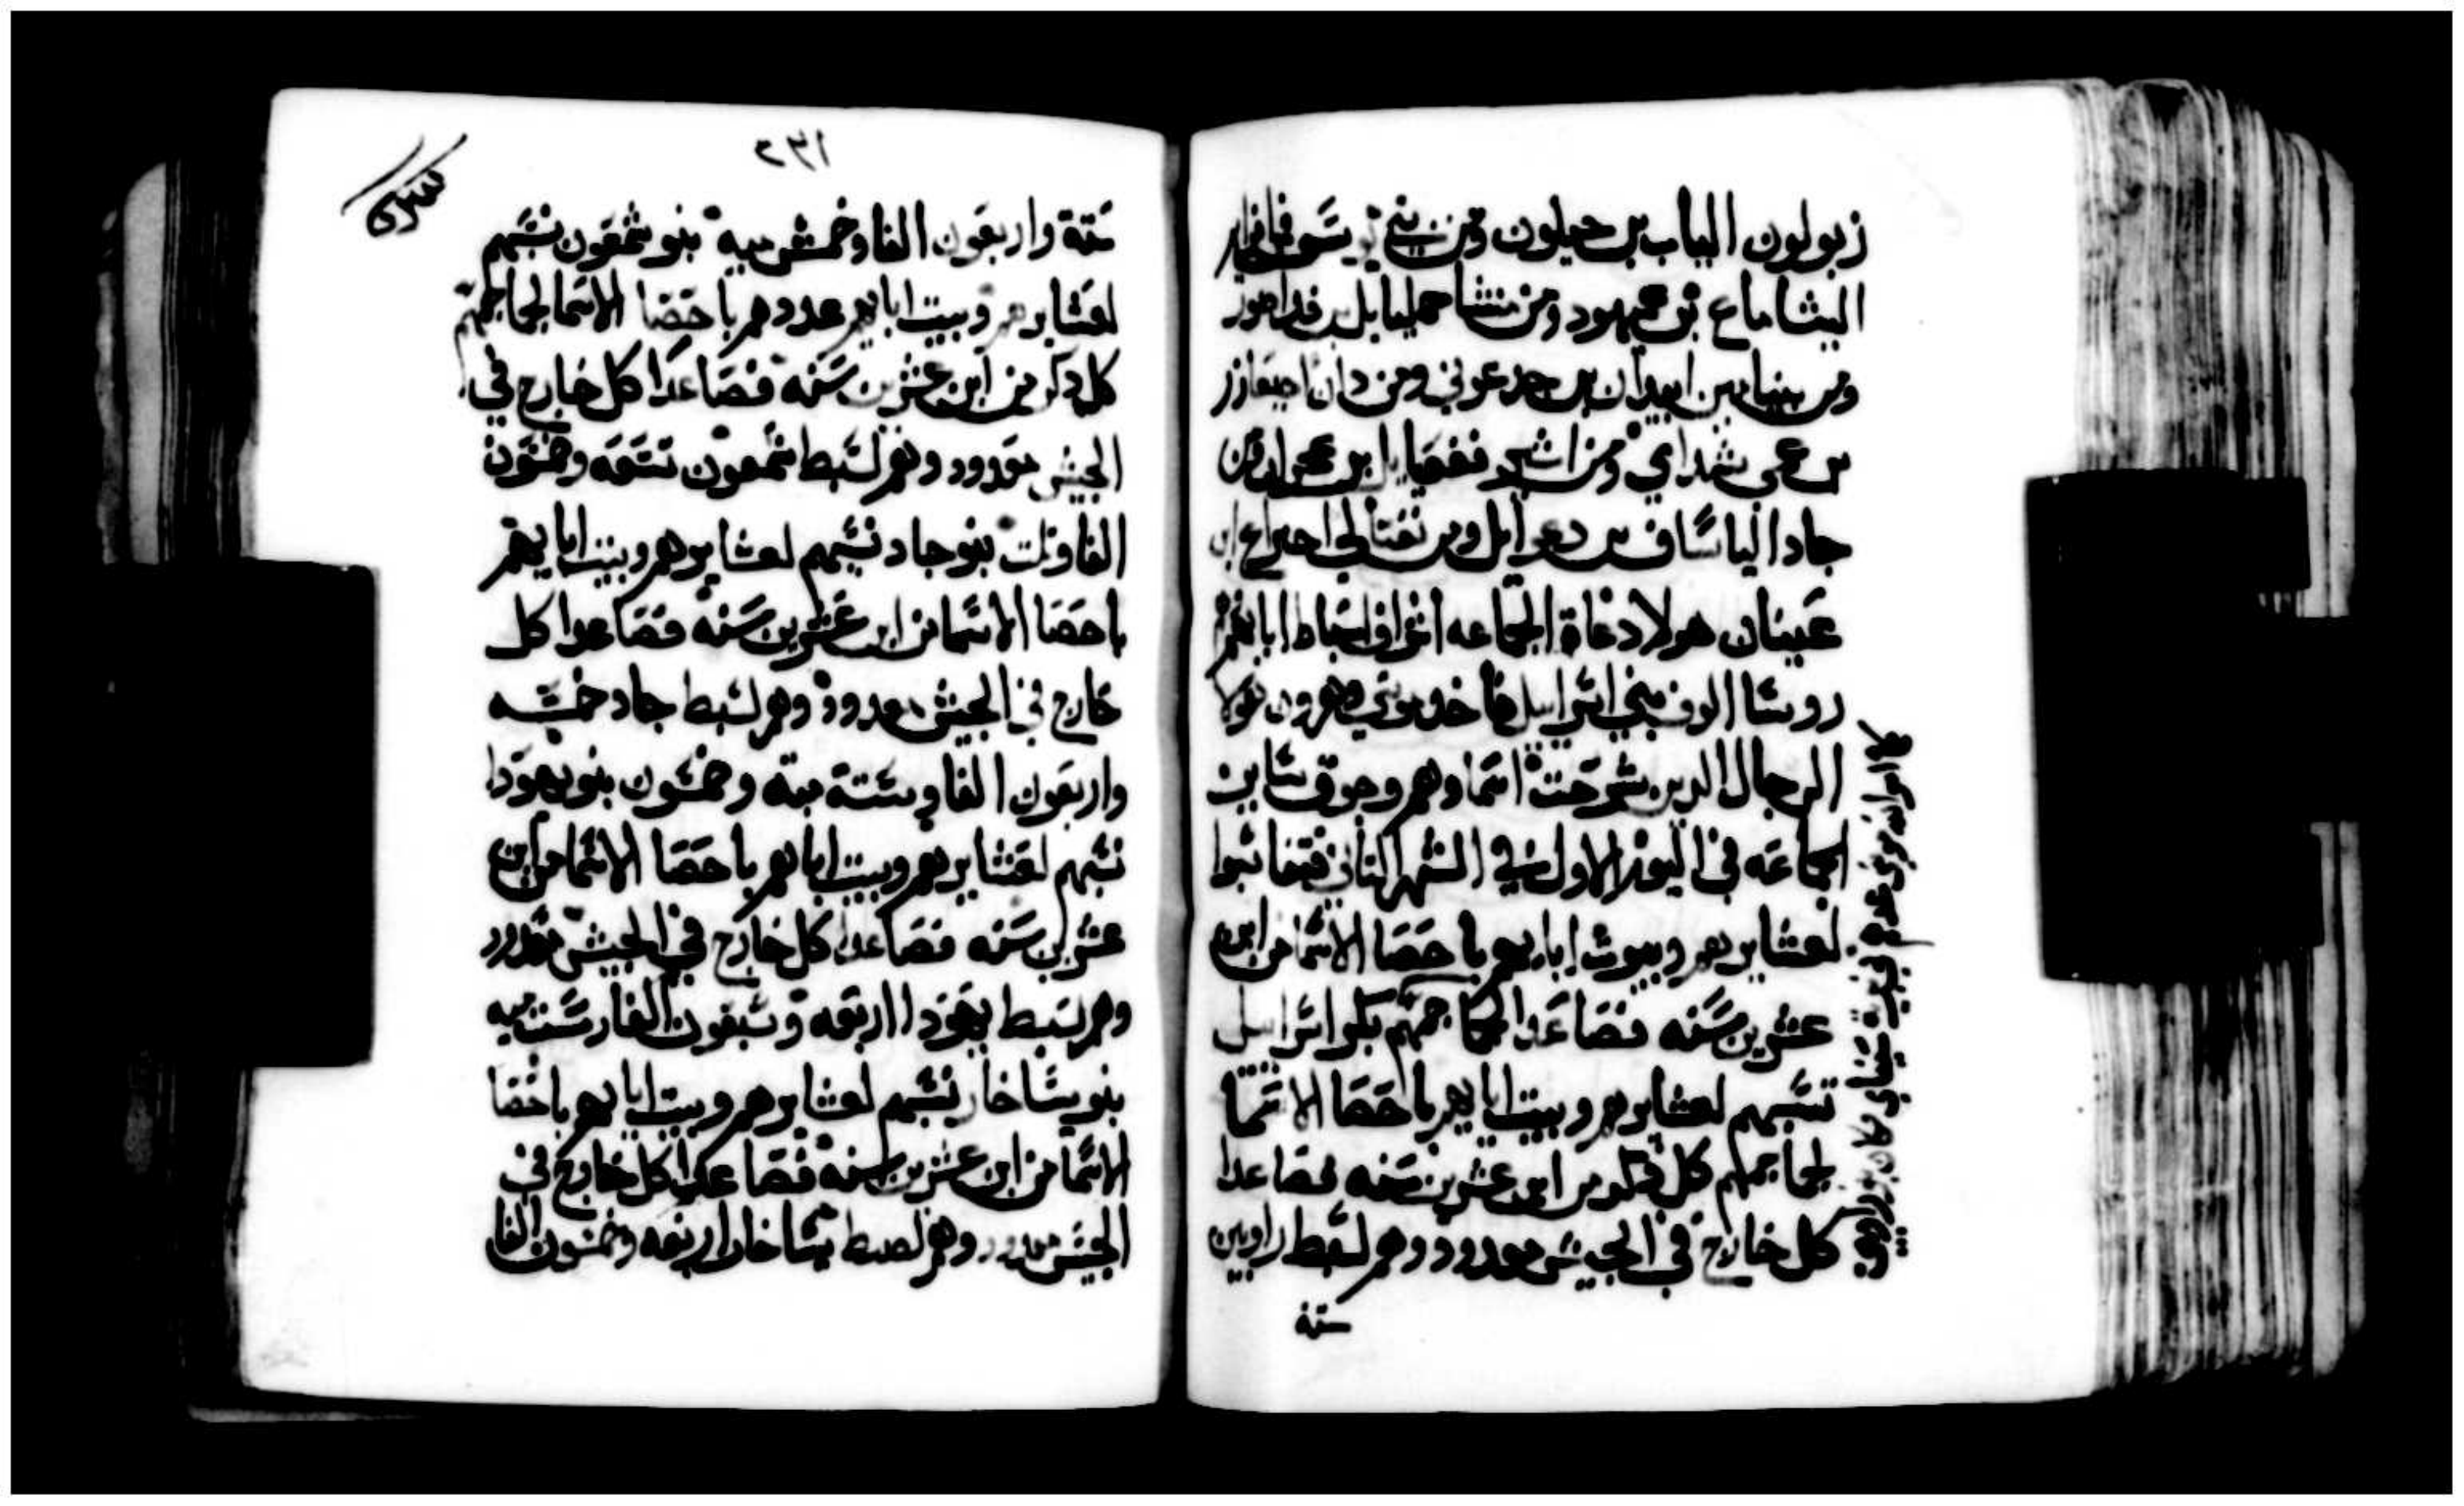 زبولون الياب بن حيلون ومن بني يوسف فافرايم
اليشاماع بن عميهود ومن منشا حمليايل بن فداصور
ومن بنيامين ابيدان بن جدعوني ومن دان اجيعازر
بن عمي شداي ومن اشير فغعيايل بن عخران ومن
جاد الياساف بن دعوايل ومن نفتالي احيراع بن
عينان هولا دعاة الجماعه اشراف اسباط ابايهم
روسا الوف بني اسراييل فاخد موسي وهرون هولا
الرجال الدين شرحت اسماوهم وجوق ساير
الجماعه في اليوم الاول في الشهر التاني فتناسبوا
لعشايرهم وبيوت ابايهم باحصا الاسما من ابن
عشرين سنه فصاعدا لجماجمهم بكر اسراييل
نسبهم لعشايرهم وبيت ابايهم باحصا الاسما
لجماجمهم كل دكر من ابن عشرين سنه فصاعدا
كل خارج في الجيش معدود وهم لسبط راوبين
سته
كما امر الله موسي عدهم في برية سيناي وكان بنو راوبين
٢٣١
ستة واربعون الفا وخمس ميه بنو شمعون نسبهم
لعشايرهم وبيت ابايهم عددهم باحصا الاسما لجماجمهم
كل دكر من ابن عشرين سنه فصاعدا كل خارج في
الجيش معدود وهم لسبط شمعون تسعه وخمسون
الفا وتلت بنو جاد نسبهم لعشايرهم وبيت ابايهم
باحصا الاسما من ابن عشرين سنه فصاعدا كل
خارج في الجيش معدود وهم لسبط جاد خمسه
واربعون الفا وستة ميه وخمسون بنو يهودا
نسبهم لعشايرهم وبيت ابايهم باحصا الاسما من ابن
عشرين سنه فصاعدا كل خارج في الجيش معدود
وهم لسبط يهودا اربعه وسبعون الفا وست ميه
بنو يساخار نسبهم لعشايرهم وبيت ابايهم باحصا
الاسما من ابن عشرين سنه فصاعدا كل خارج في
الجيش معدود وهم لصبط يساخار اربعه وخمسون الفا